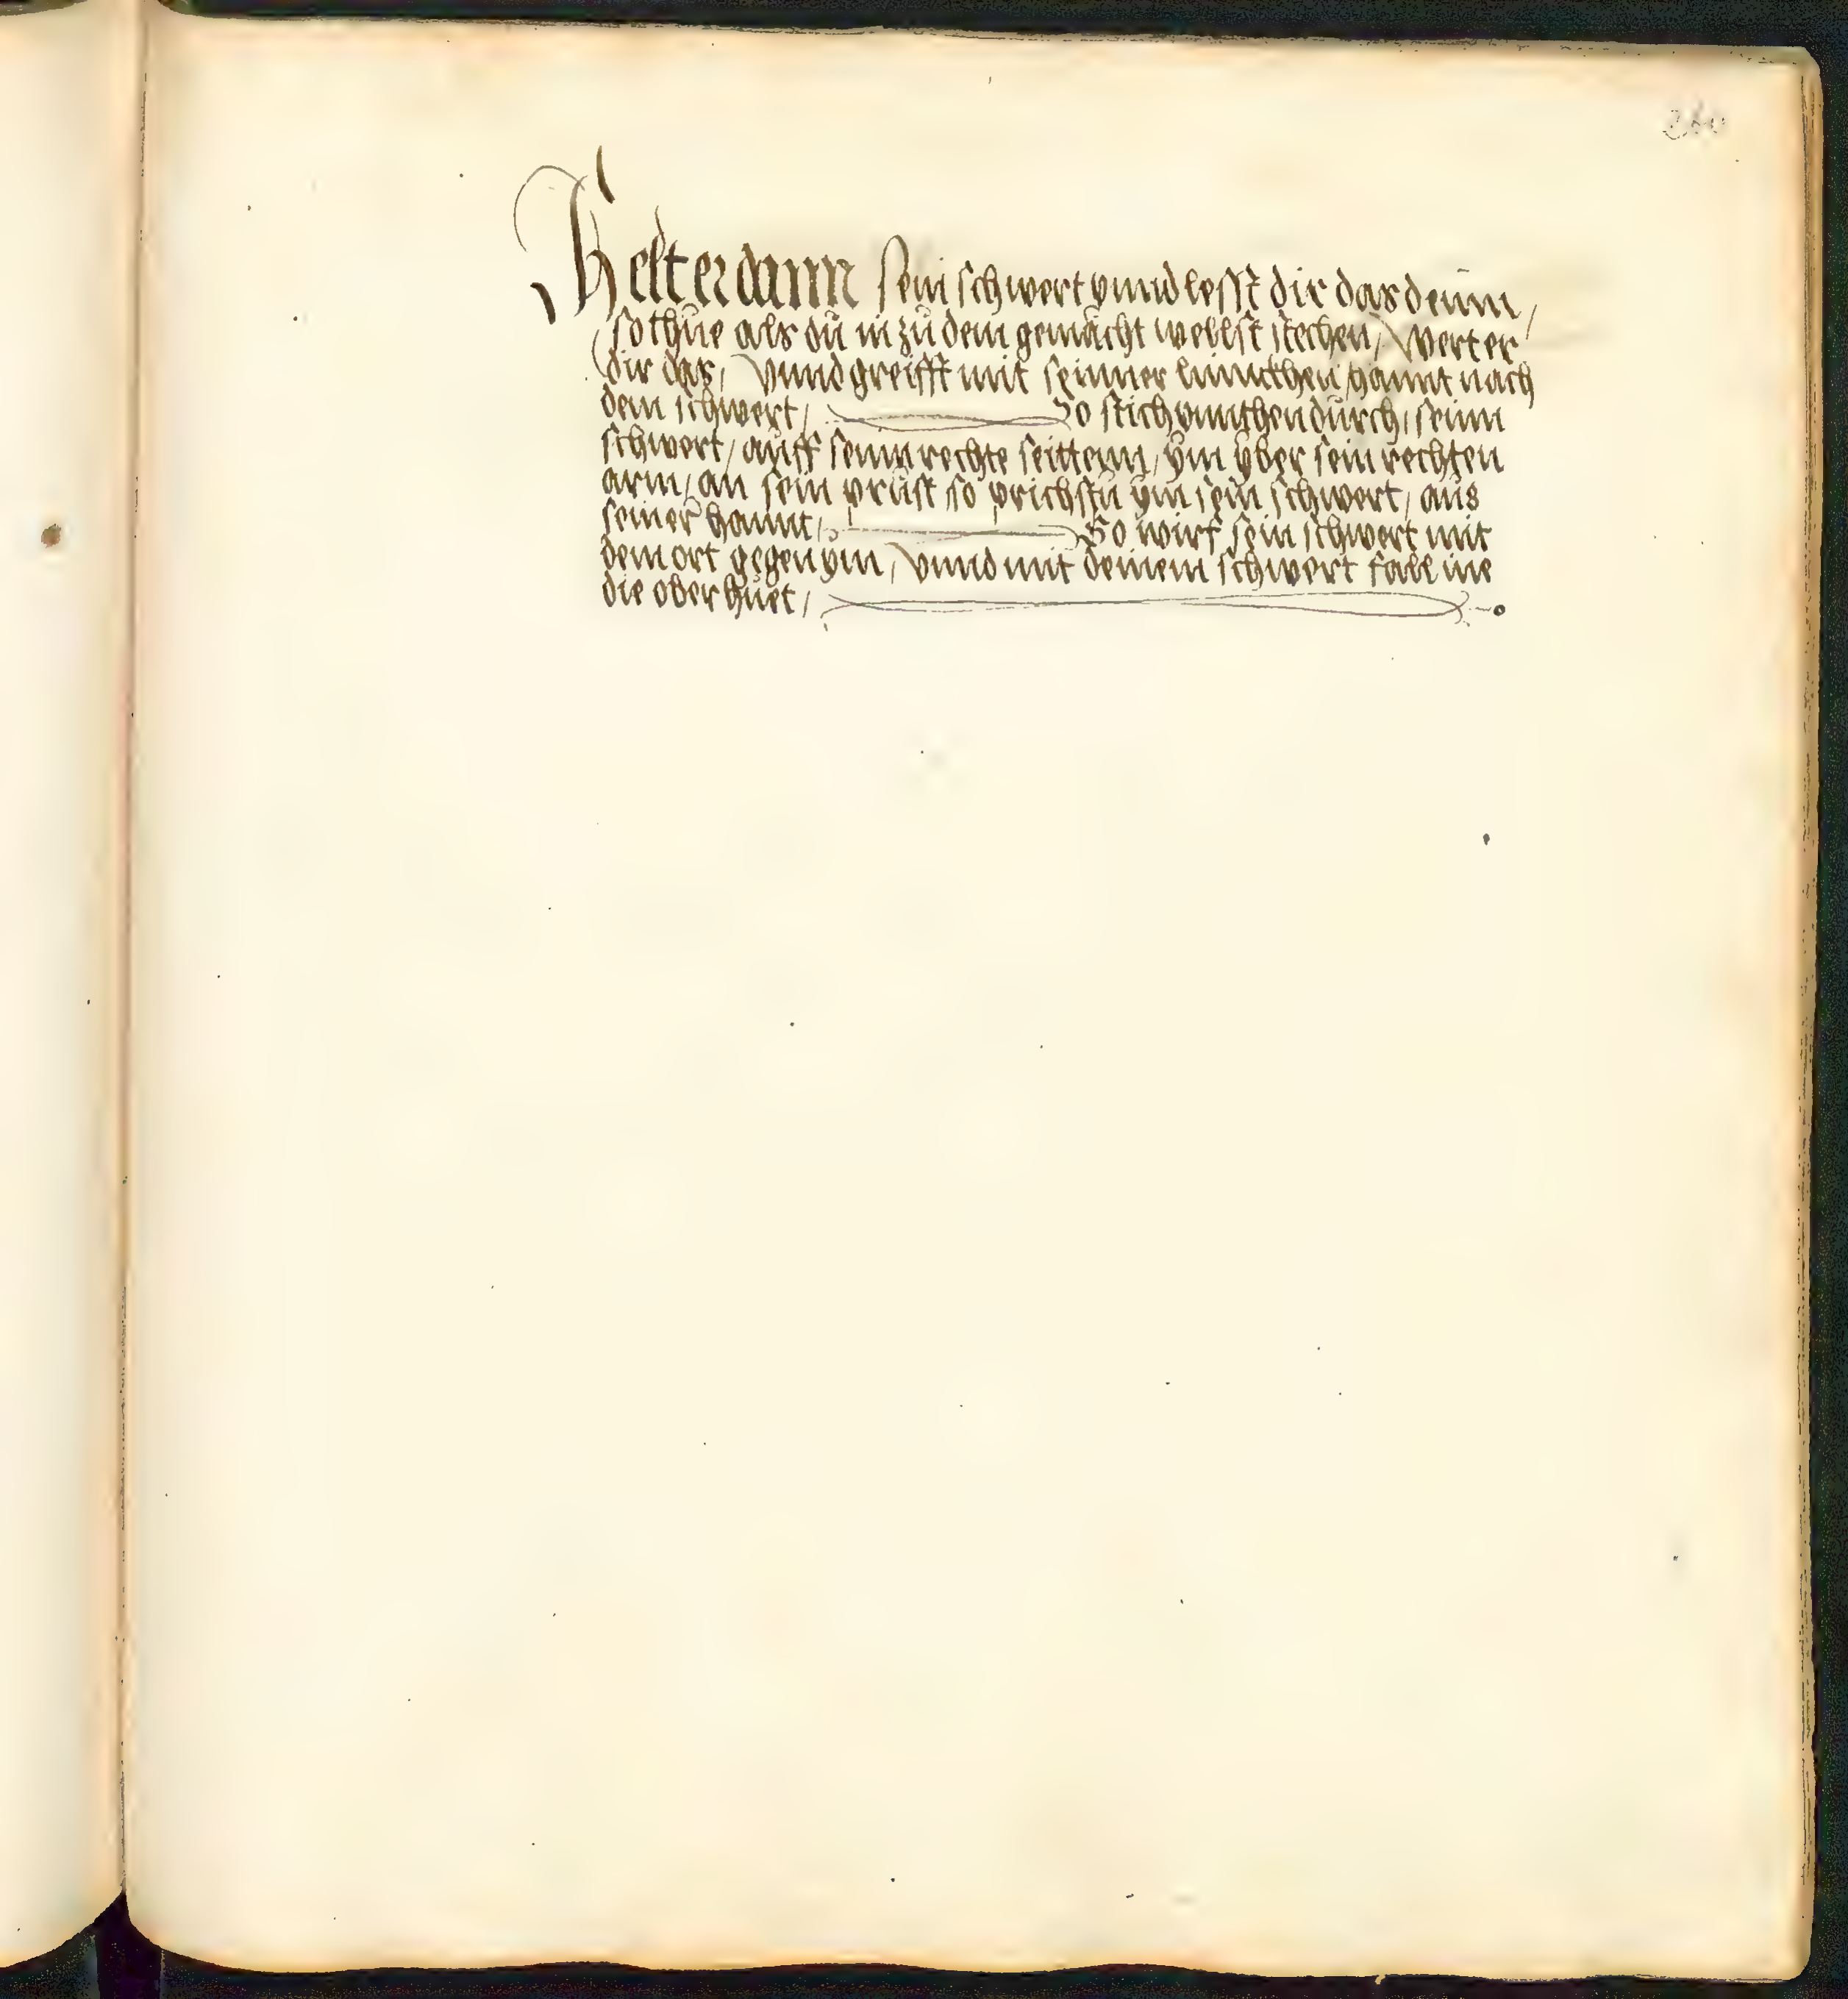 Helt er dann sein schwert vnnd lesst dir das deinn /
so thůe als dů in zů dem gemacht wellst stechen / Wert er
dir das / Vnnd greifft mit seinner linncthen hannt nach
dem schwert / So stich vnnthen důrch / seinn
schwert / aůff seinn rechte seittenn / ym ÿber sein rechten
arm / an sein průst so prichstu ym sein schwert / aůs
seiner hannt / So wirf sein schwert mit
dem ort gegen ym / Vnnd mit deinem schwert fall ine
die ober hůet /